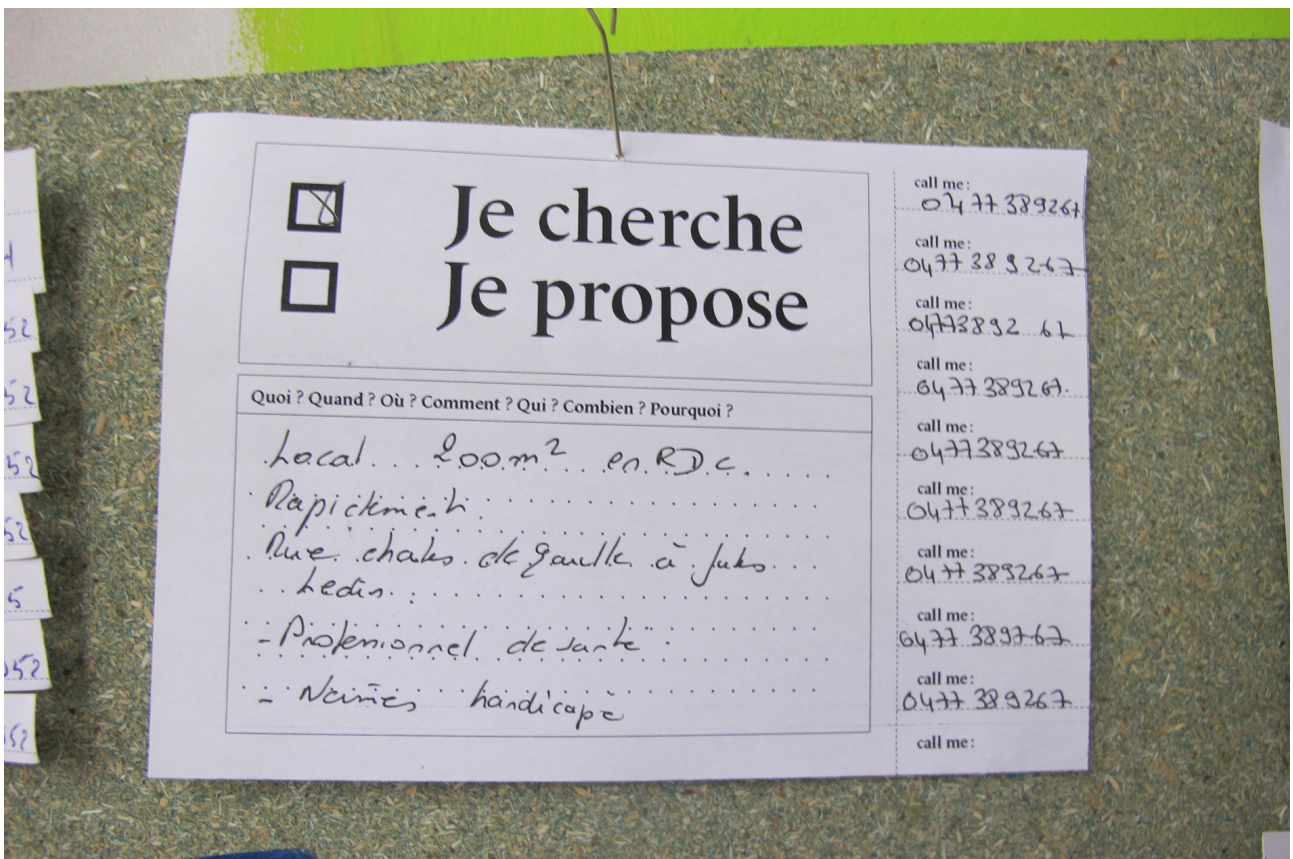 Je cherche
Je propose
Quoi ? Quand ? Où ? Comment ? Qui ? Combien ? Pourquoi ?
Local 200m² en RDC.
Rapidement.
Rue chales de Gaulle à
- Profesionnel de sante
- handicape
call me :
0477389267
call me :
0477389267
call me :
0477389267
call me :
0477389267
call me :
0477389267
call me :
0477389267
call me :
0477389267
call me :
0477389767
call me :
0477389267
call me :
52
52
52
52
5
052
52